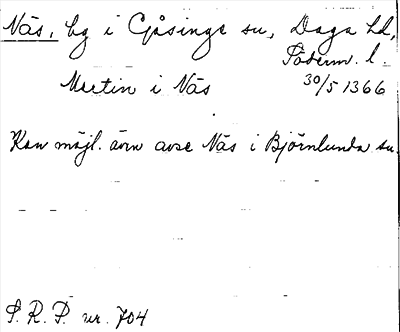 Näs, by i Gåsinge sn, Daga hd,
Söderm. l.
Martin i Näs 30/5 1366
Kan möjl. även avse Näs i Björnlunda sn.
S. R. P. nr. 704